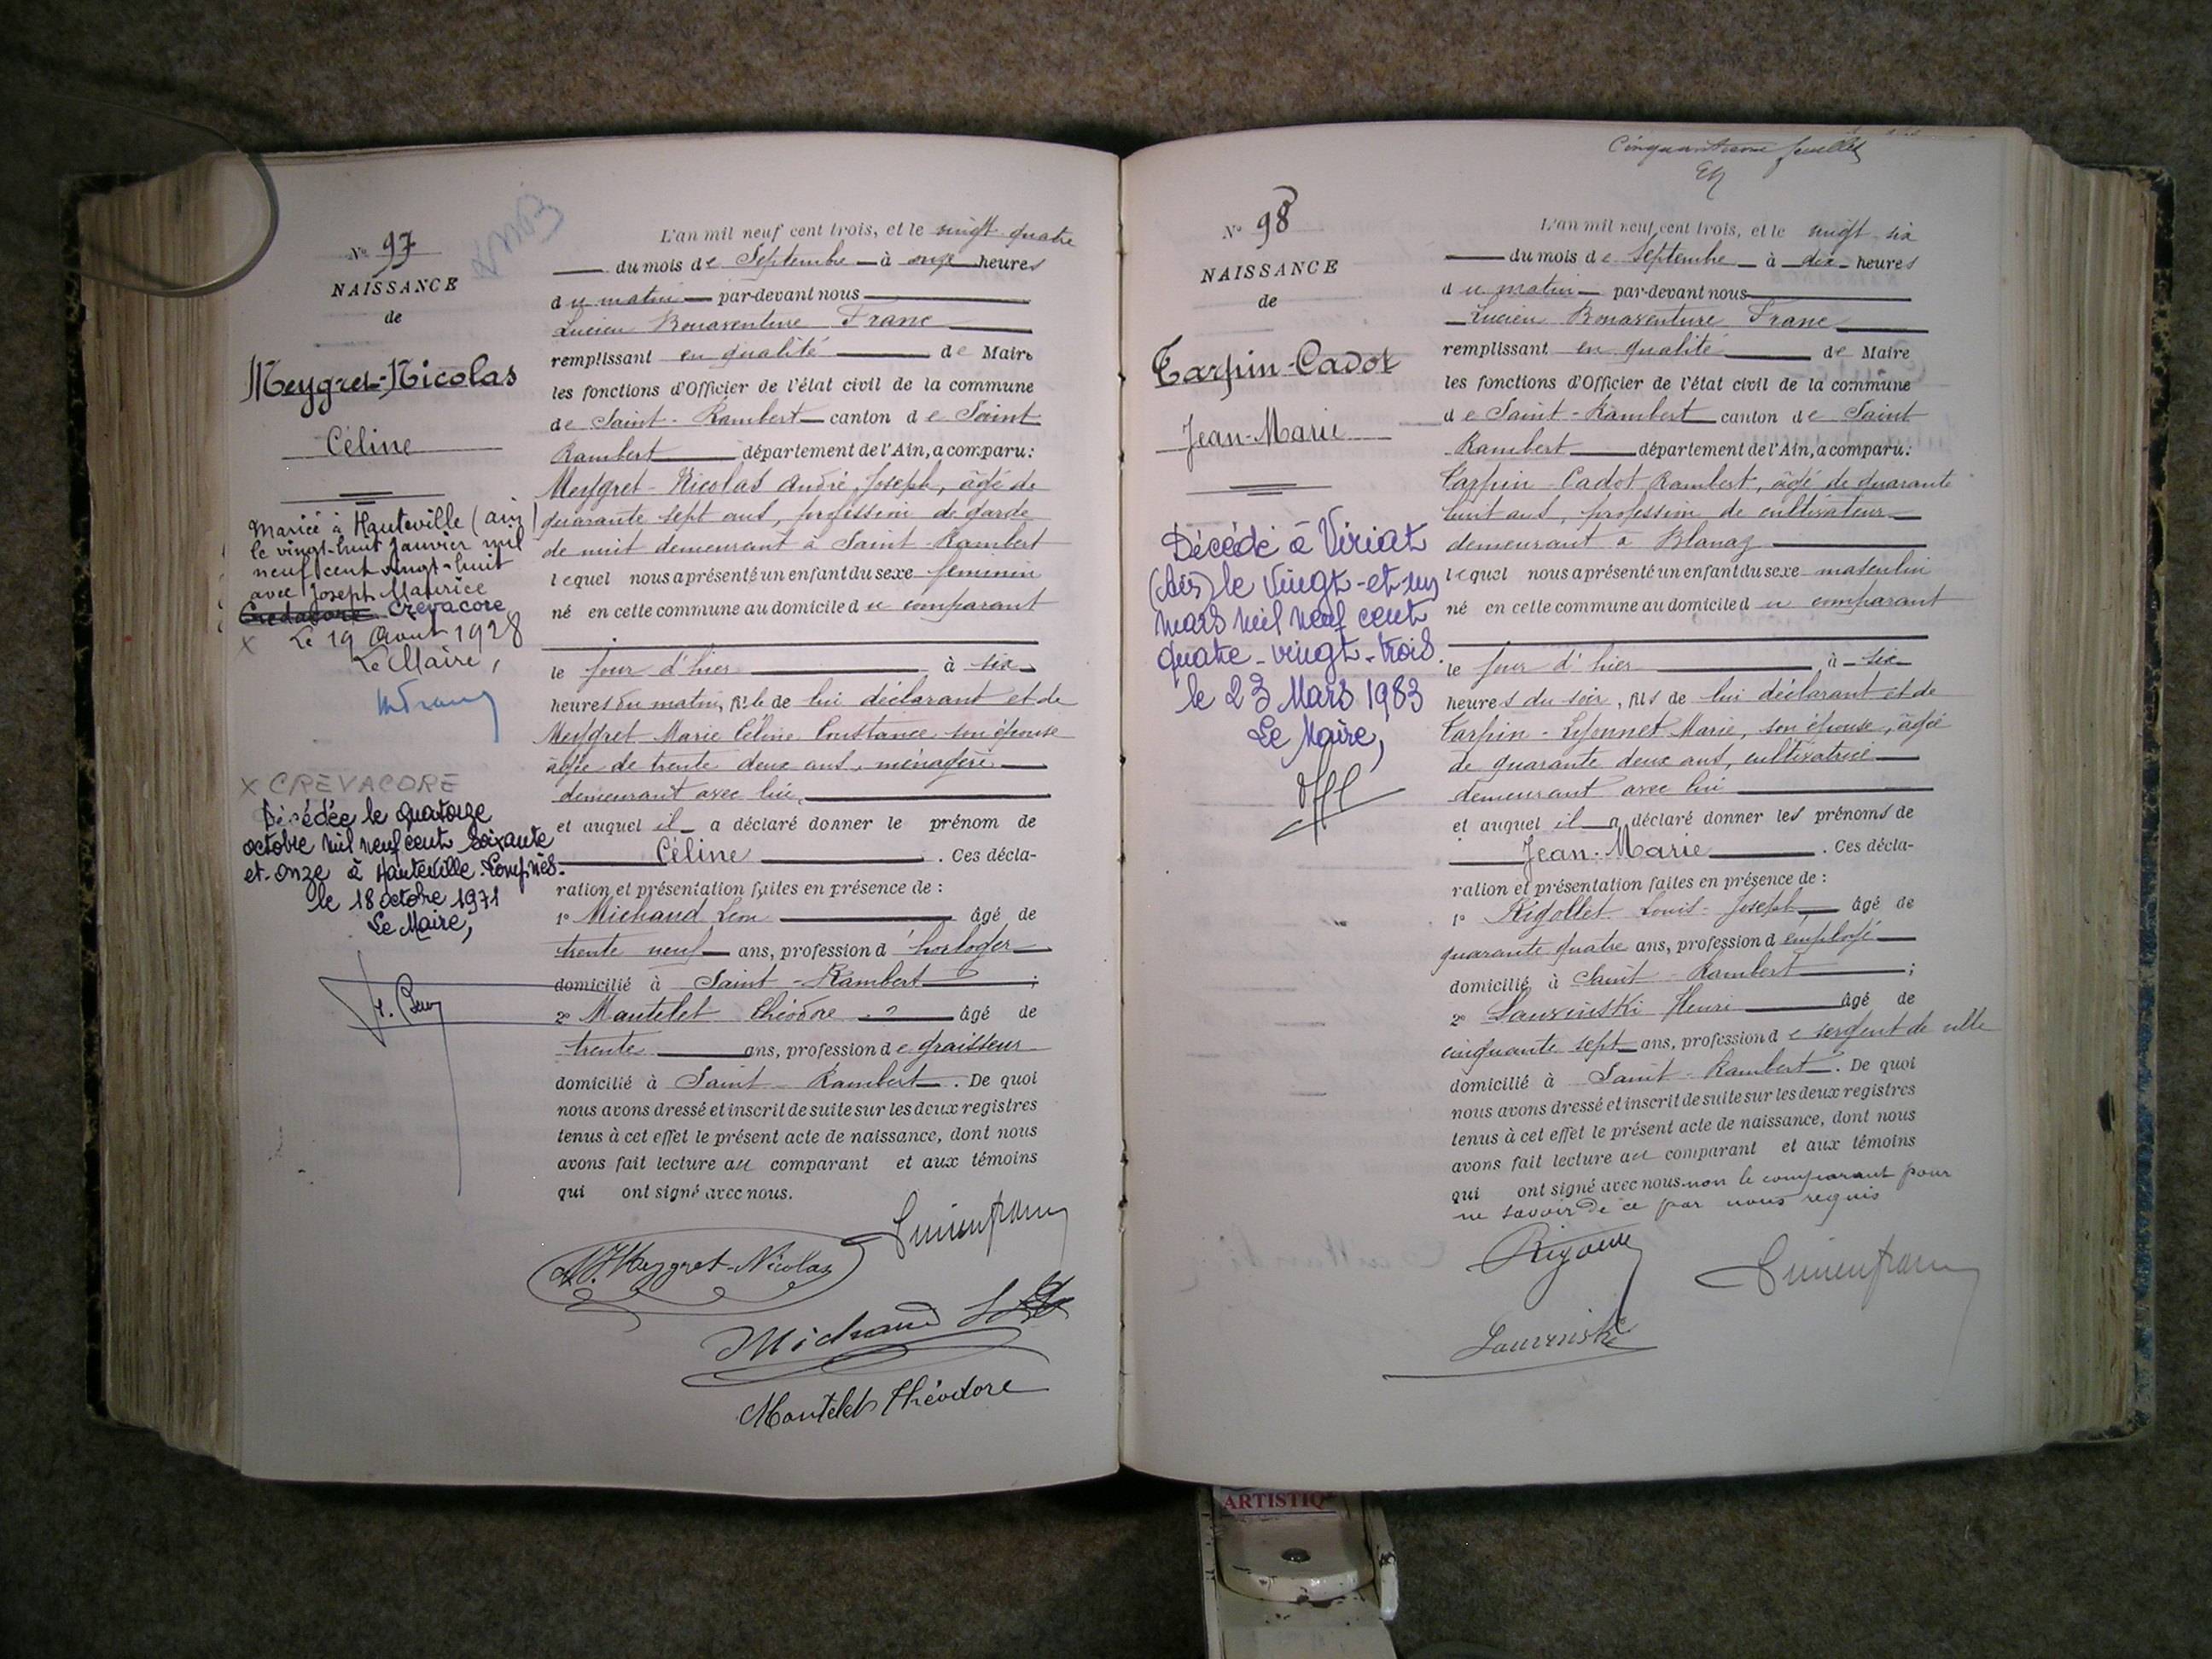 N° 97
NAISSANCE
de
Meygret-Nicolas
Céline
Mariée à Hauteville (ain)
le vingt-huit janvier mil
neuf cent vingt-huit
avec Joseph Maurice
Crevacore
X Le 19 Aout 1928
Le Maire,
X CREVACORE
Décédée le quatorze
octobre mil neuf cent soixante
et-onze à Hauteville-Lompnès.
le 18 octobre 1971
Le Maire,
L'an mil neuf cent trois, et le vingt quatre
du mois de Septembre à onze heures
du matin par-devant nous
Lucien Bonaventure Franc
remplissant en qualité de Maire
les fonctions d'Officier de l'état civil de la commune
de Saint-Rambert canton de Saint
Rambert département de l'Ain, a comparu:
Meygret-Nicolas André, Joseph, âgé de
quarante sept ans, profession de garde
de nuit demeurant à Saint-Rambert
lequel nous a présenté un enfant du sexe féminin
né en cette commune au domicile du comparant
le jour d'hier à six
heures du matin, fille de lui déclarant et de
Meygret Marie Céline Constance son épouse
âgée de trente deux ans, ménagère
demeurant avec lui,
et auquel il a déclaré donner le prénom de
Céline. Ces décla-
ration et présentation faites en présence de :
1° Michaud Léon âgé de
trente neuf ans, profession d'horloger
domicilié à Saint-Rambert ;
2° Mantelet Théodore âgé de
trente ans, profession de graisseur
domicilié à Saint-Rambert. De quoi
nous avons dressé et inscrit de suite sur les deux registres
tenus à cet effet le présent acte de naissance, dont nous
avons fait lecture au comparant et aux témoins
qui ont signé avec nous.
Meygret-Nicolas
Michaud
Mantelet Théodore
Cinquantième feuillet
N° 98
NAISSANCE
de
Tarpin-Cadot
Jean-Marie
Décédé à Viriat
(Ain) le vingt-et-un
mars mil neuf cent
quatre-vingt-trois.
le 23 Mars 1983
Le Maire,
L'an mil neuf cent trois, et le vingt six
du mois de Septembre à dix heures
du matin par-devant nous
Lucien Bonaventure Franc
remplissant en qualité de Maire
les fonctions d'Officier de l'état civil de la commune
de Saint-Rambert canton de Saint
Rambert département de l'Ain, a comparu:
Tarpin-Cadot Rambert, âgé de quarante
huit ans, profession de cultivateur
demeurant à Blanaz
lequel nous a présenté un enfant du sexe masculin
né en cette commune au domicile du comparant
le jour d'hier, à six
heures du soir, fils de lui déclarant et de
Tarpin-Lyonnet Marie, son épouse, âgée
de quarante deux ans, cultivatrice
demeurant avec lui
et auquel il a déclaré donner les prénoms de
Jean-Marie. Ces décla-
ration et présentation faites en présence de :
1° Rigollet Louis-Joseph, âgé de
quarante quatre ans, profession d'employé
domicilié à Saint-Rambert ;
2° Lauzinski Henri âgé de
cinquante sept ans, profession de sergent de ville
domicilié à Saint-Rambert. De quoi
nous avons dressé et inscrit de suite sur les deux registres
tenus à cet effet le présent acte de naissance, dont nous
avons fait lecture au comparant et aux témoins
qui ont signé avec nous non le comparant pour
ne savoir de ce par nous requis
ARTISTIQ